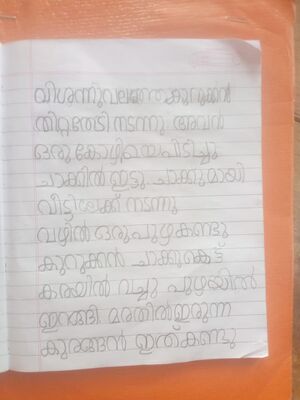 വിശന്നുവലഞ്ഞകുറുക്കൻ
തീറ്റതേടി നടന്നു അവൻ
ഒരു കോഴിയെപിടിച്ചു
ചാക്കിൽ ഇട്ടു. ചാക്കുമായി
വീട്ടിലേക്ക് നടന്നു
വഴിൽ ഒരുപുഴകണ്ടു
കുറുക്കൻ ചാക്കുകെട്ട്
കരയിൽ വച്ചു പുഴയിൽ
ഇറങ്ങി. മരത്തിൽഇരുന്ന
കുരങ്ങൻ ഇത്കണ്ടു